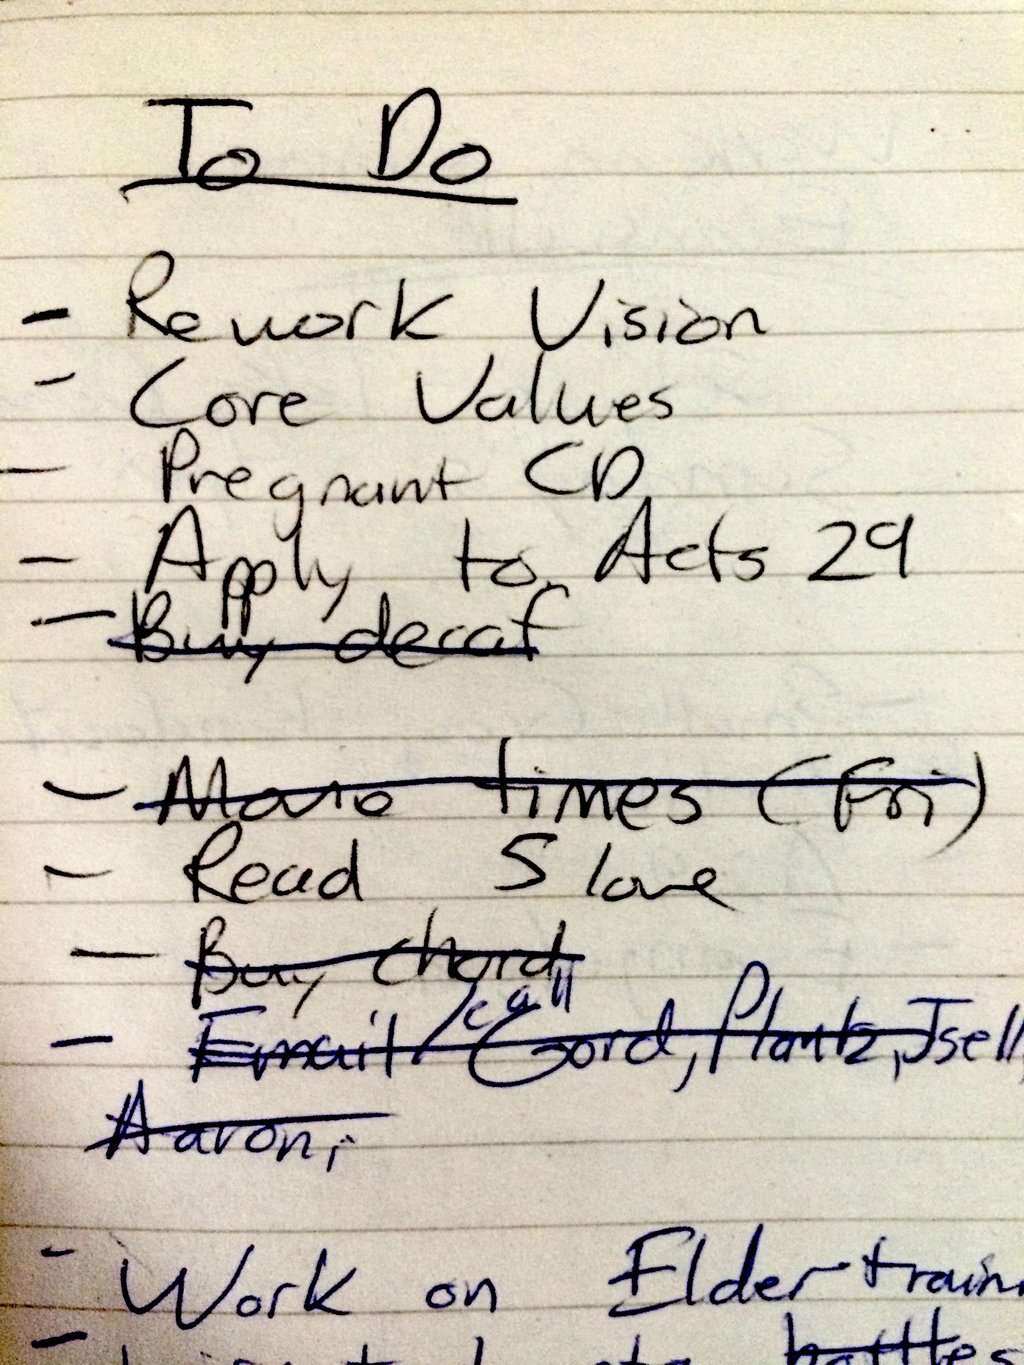 To Do
- Rework Vision
- Core Values
- Pregnant CD
- Apply to Acts 29
- Buy decaf
- times (Fri)
- Read 5 love
- Buy chord
- Email/call Gord, Plantz, Jsell,
Aaron,
- Work on Elder train
- bottles